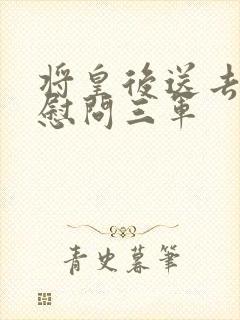 将皇後送去
慰問三軍
青史暮筆